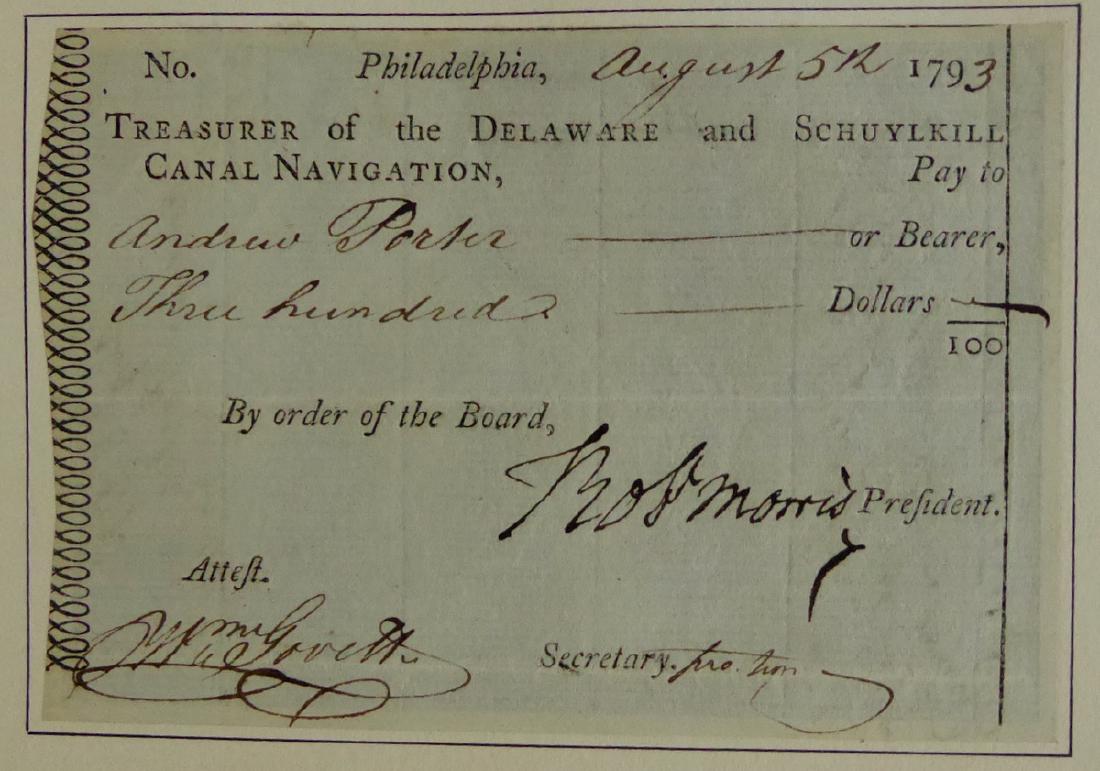 No. Philadelphia, August 5th 1793
TREASURER of the DELAWARE and SCHUYLKILL
CANAL NAVIGATION, Pay to
Andrew Porter or Bearer,
Three hundred Dollars
100
By order of the Board,
Robt Morris Preſident.
Atteſt.
Wm Govett Secretary. pro. tem